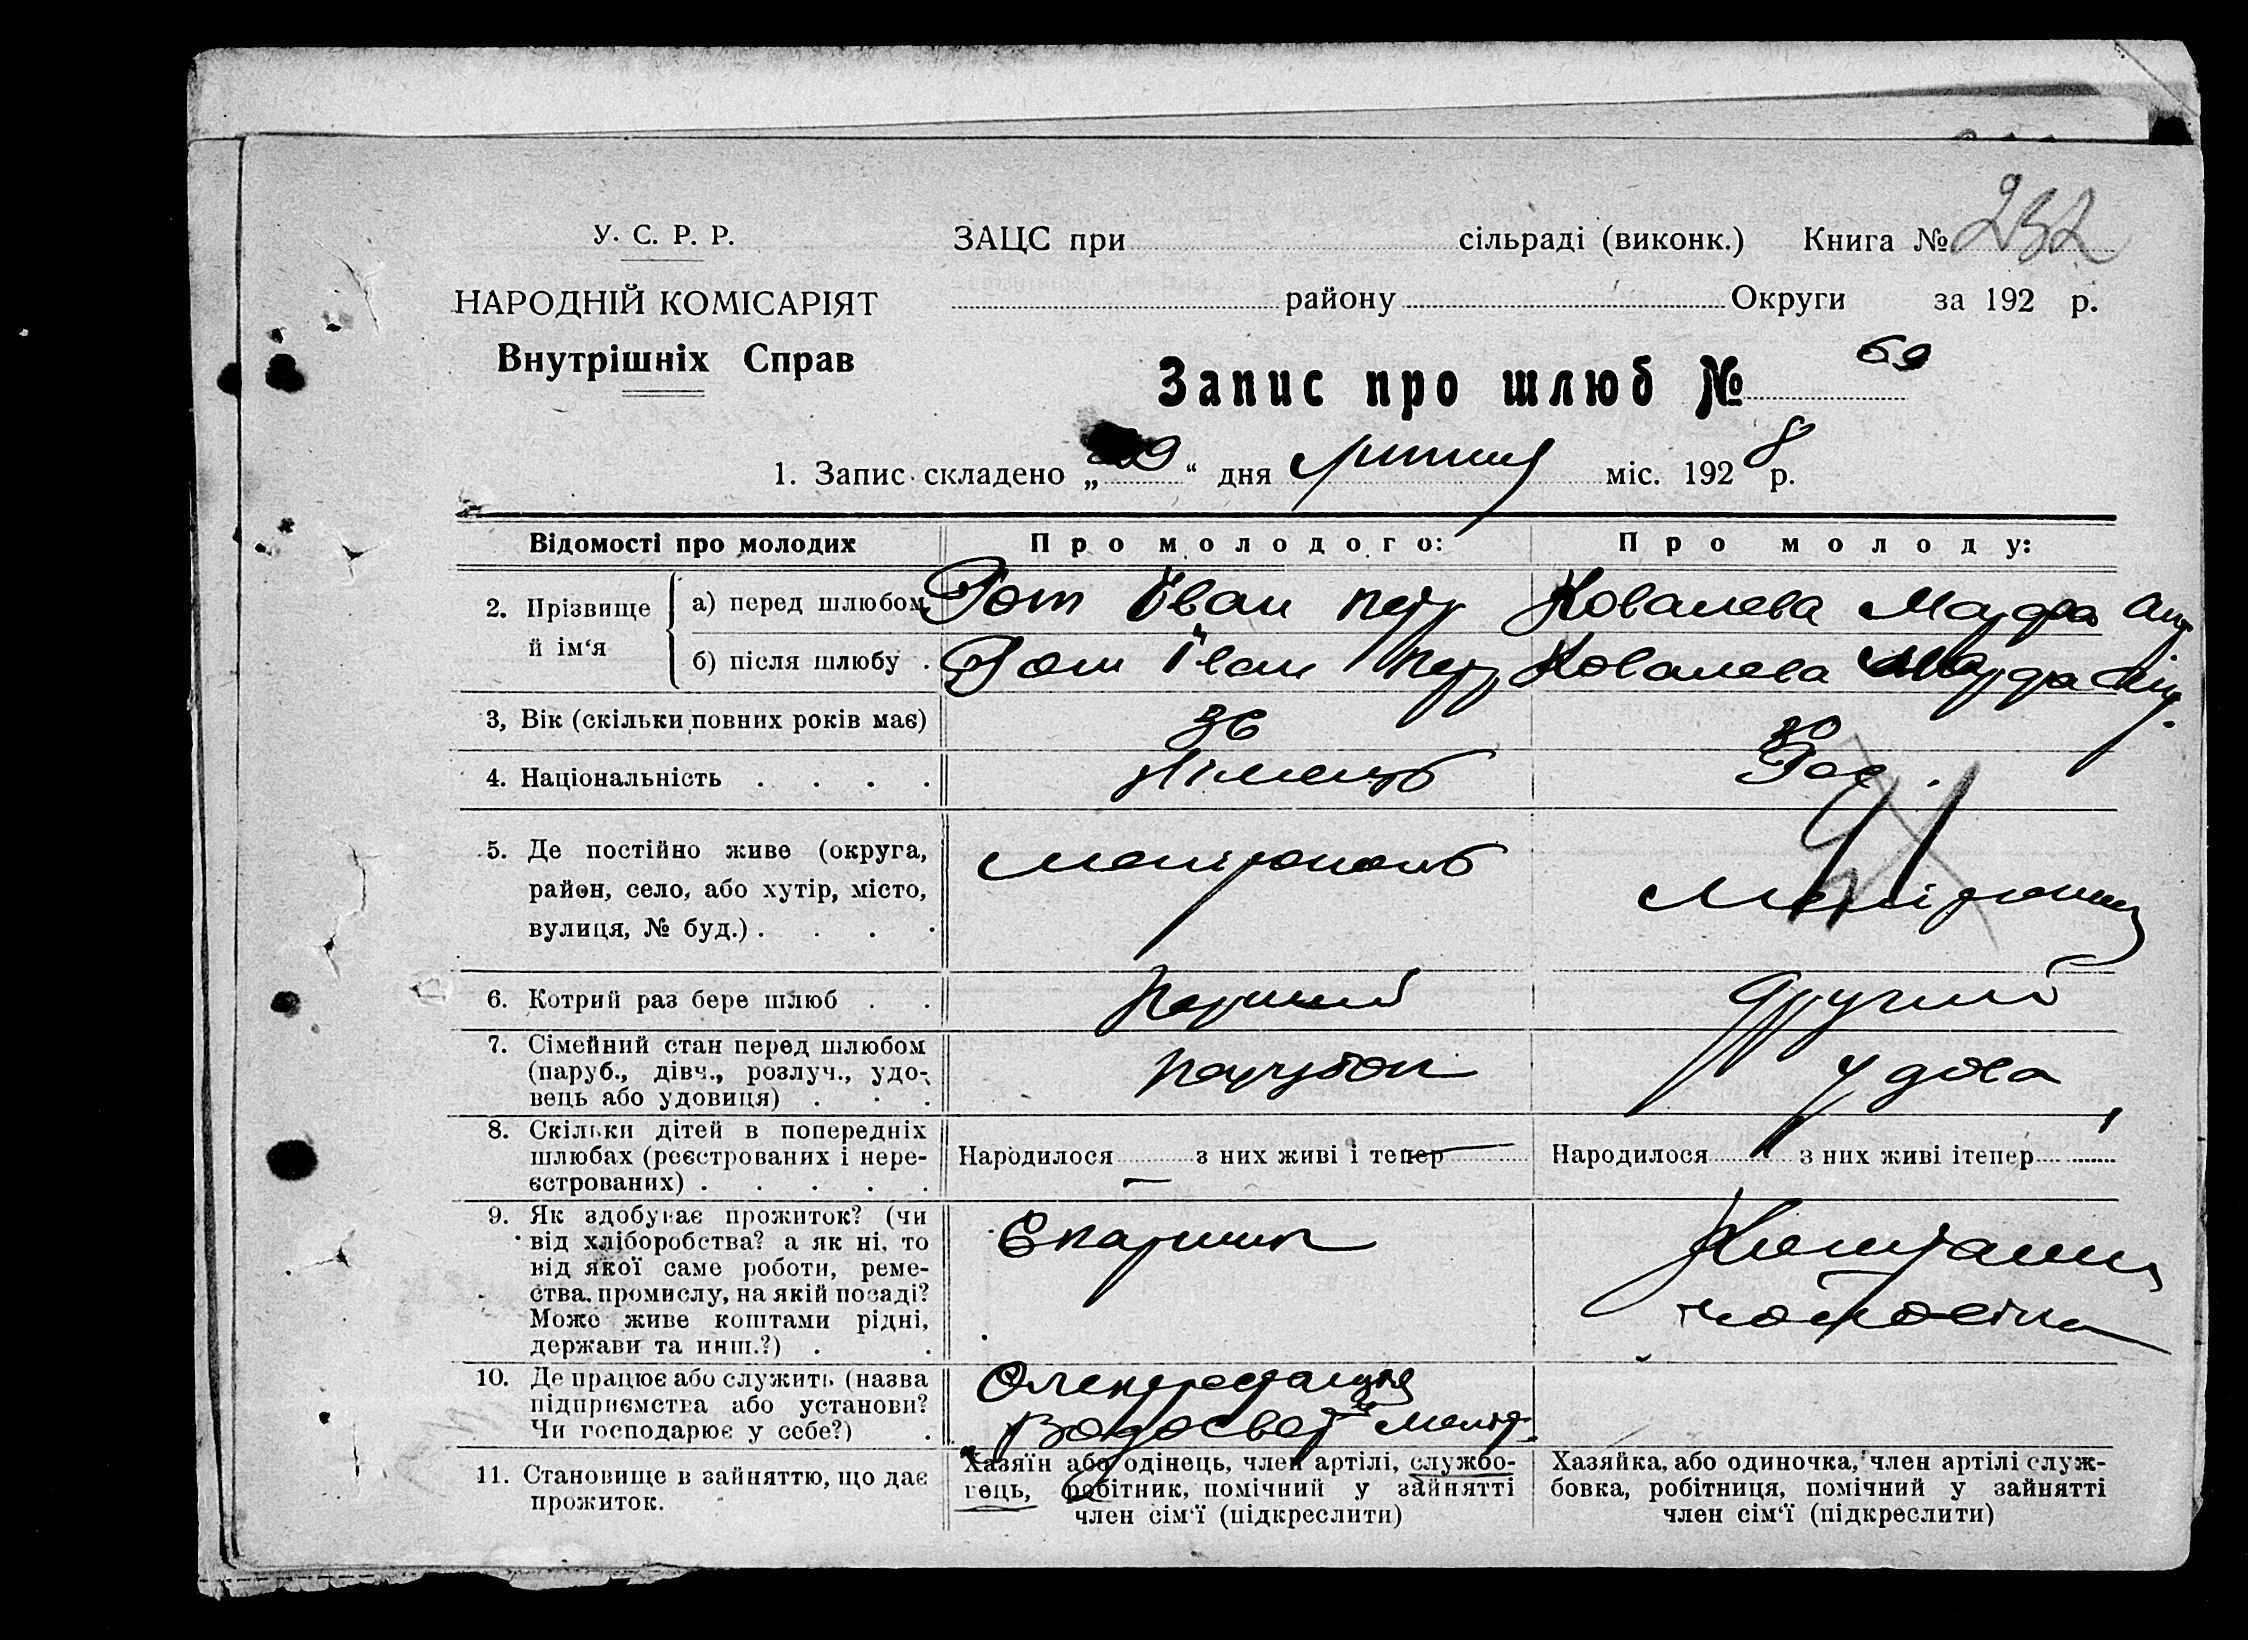 У. С. Р. Р.
НАРОДНІЙ КОМІСАРІЯТ
Внутрішніх Справ
ЗАЦС при сільраді (виконк.) Книга № 232
району Округи за 192 р.
Запис про шлюб № 69
1. Запис складено „ “ дня липня міс. 1928 р.
Відомості про молодих Про молодого: Про молоду:
2. Прізвище й ім‘я
а) перед шлюбом Гот Іван Петр Ковалева Мавра Анд
б) після шлюбу . Гот Іван Петр Ковалева Мавра
3, Вік (скільки повних років має) 36 30
4. Національність . . . . Німець Рос.
5. Де постійно живе (округа,
район, село, або хутір, місто,
вулиця, № буд.) . . . .
Мелітополь
6. Котрий раз бере шлюб . . Перший Другий
7. Сімейний стан перед шлюбом
(паруб., дівч., розлуч., удо-
вець або удовиця) . . .
парубок удова
8. Скільки дітей в попередніх
шлюбах (реєстрованих і нере-
єстрованих) . . . . .
Народилося — з них живі і тепер —
Народилося з них живі ітепер
9. Як здобуває прожиток? (чи
від хліборобства? а як ні, то
від якої саме роботи, реме-
ства, промислу, на якій посаді?
Може живе коштами рідні,
держави та инш.?) . .
Коштами
чоловіка
10. Де працює або служить (назва
підприємства або установи?
Чи господарює у себе?) .
11. Становище в зайняттю, що дає
прожиток.
Хазяїн або одінець, член артілі, службо-
вець, робітник, помічний у зайнятті
член сім‘ї (підкреслити)
Хазяйка, або одиночка, член артілі служ-
бовка, робітниця, помічний у зайнятті
член сім‘ї (підкреслити)